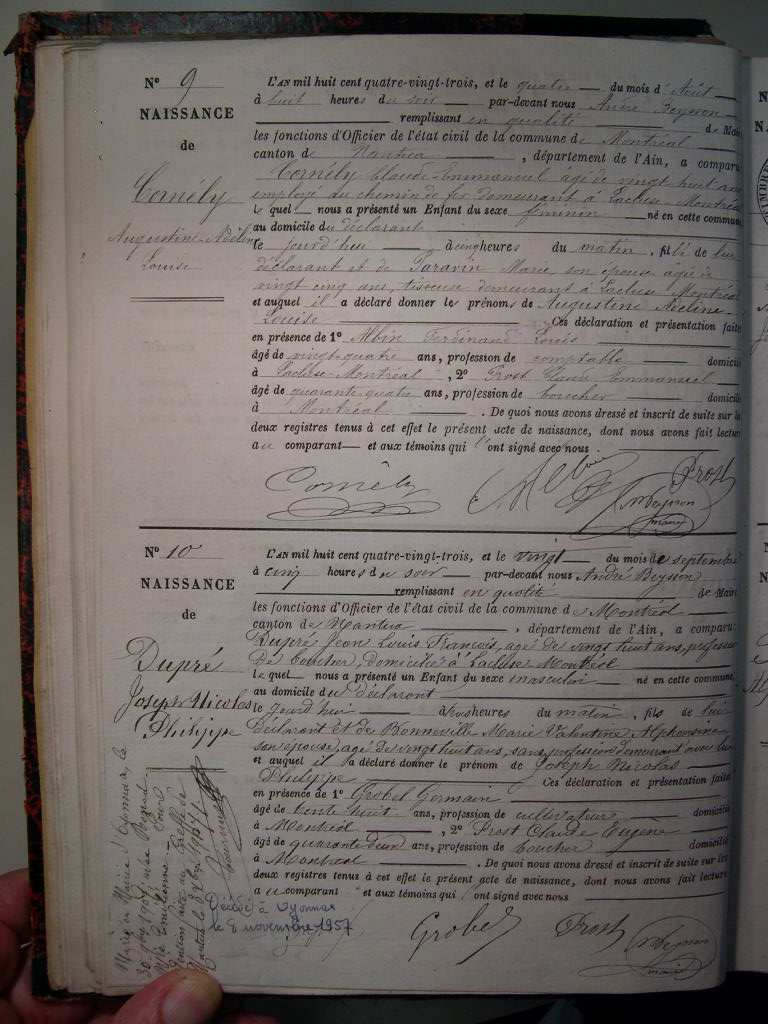 N° 9
NAISSANCE
de
Cornély
Augustine Noéline
Louise
L'AN mil huit cent quatre-vingt-trois, et le quatre du mois d'Août
à huit heures du soir par-devant nous André Beyson
remplissant en qualité de Mair
les fonctions d'Officier de l'état civil de la commune de Montréal
canton de Nantua, département de l'Ain, a comparu
Cornély Claude-Emmanuel agé de vingt huit ans
employé du chemin de fer demeurant à Lacluse-Montréal
lequel nous a présenté un Enfant du sexe féminin né en cette commune
au domicile du déclarant
le jourd'hui à cinq heures du matin, fille de lui
déclarant et de Marie son épouse agée de
vingt cinq ans, tisseuse demeurant à Lacluse Montréal
et auquel il a déclaré donner le prénoms de Augustine
Louise Ces déclaration et présentation faite
en présence de 1° Albin Ferdinand Louis
âgé de vingt-quatre ans, profession de comptable domicilié
à Lacluse-Montréal, 2° Prost Emmanuel
âgé de quarante-quatre ans, profession de boucher domicilié
à Montréal. De quoi nous avons dressé et inscrit de suite sur les
deux registres tenus à cet effet le présent acte de naissance, dont nous avons fait lecture
au comparant et aux témoins qui l'ont signé avec nous
Cornély Prost
maire
N° 10
NAISSANCE
de
Dupré
Joseph Nicolas
Philippe
L'AN mil huit cent quatre-vingt-trois, et le vingt du mois de septembre
à cinq heures du soir par-devant nous André Beyson
remplissant en qualité de Mair
les fonctions d'Officier de l'état civil de la commune de Montréal
canton de Nantua, département de l'Ain, a comparu
Dupré Jean Louis François, agé de vingt huit ans, profession
de boucher, domicilié à Lacluse Montréal
lequel nous a présenté un Enfant du sexe masculin né en cette commune
au domicile du déclarant
le jourd'hui à trois heures du matin, fils de lui
déclarant et de Bonneville Marie Valentine Alphonsine
son épouse, agé de vingt huit ans, sans profession demeurant avec lui
et auquel il a déclaré donner le prénom de Joseph Nicolas
Philippe Ces déclaration et présentation faite
en présence de 1° Grobel Germain
âgé de trente huit ans, profession de cultivateur domicilié
à Montréal, 2° Prost Claude Eugène
âgé de quarante deux ans, profession de boucher domicilié
à Montréal. De quoi nous avons dressé et inscrit de suite sur les
deux registres tenus à cet effet le présent acte de naissance, dont nous avons fait lecture
au comparant et aux témoins qui ont signé avec nous
Marié en Mairie d'Oyonnax, le
Décédé à Oyonnax
le 8 novembre 1957
Grobel Prost
maire